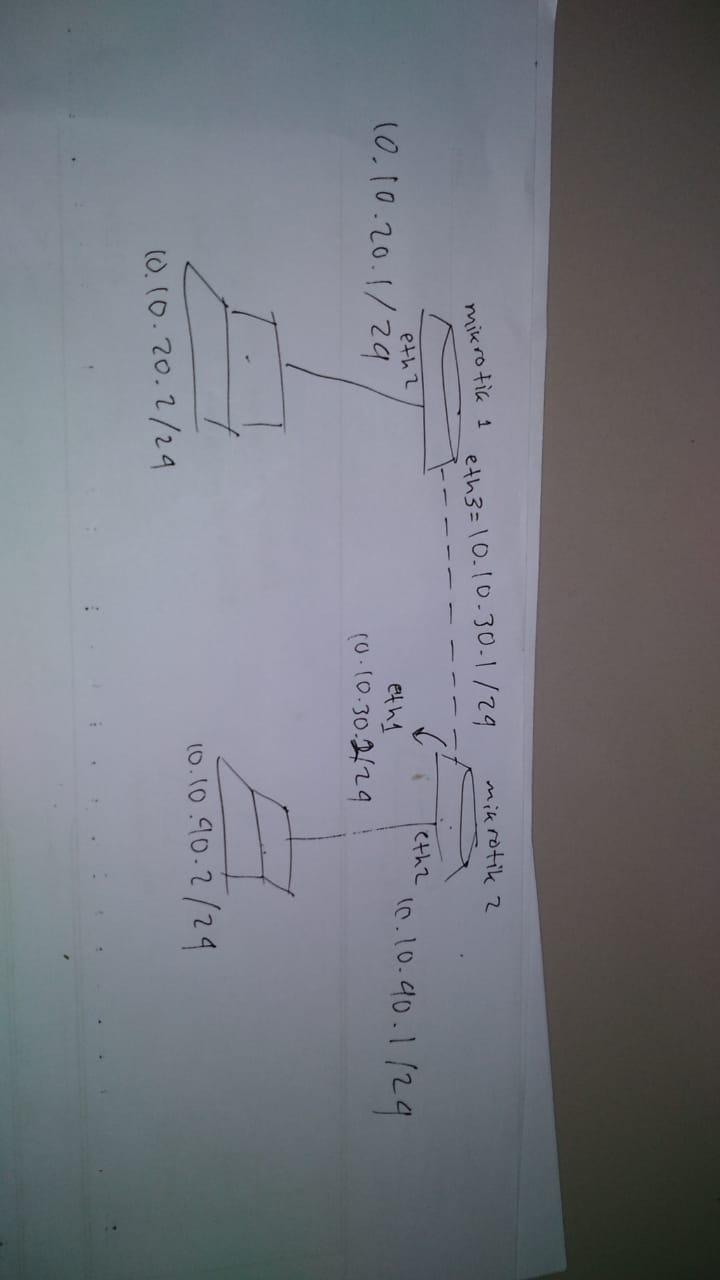 mikrotik 1
eth3=10.10.30.1/24
mikrotik 2
eth2
10.10.20.1/24
eth2
10.10.40.1/24
eth1
10.10.30.2/24
10.10.20.2/24
10.10.40.2/24